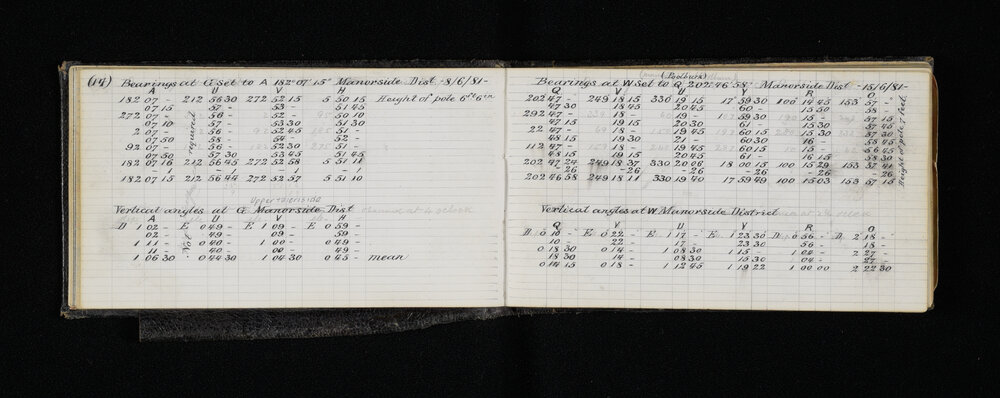 (14) Bearings at G Set to A 182° 07' 15" Manorside Dist - 8/6/81 -
A U V H
182 07 - 212 56 30 272 52 15 5 50 15 Height of pole 6 ft 6 in
07 15 57 - 53 - 51 45
272 07 - 56 - 52 - 50 10
07 10 57 - 53 30 51 30
2 07 - 56 - 52 45 51 -
07 50 58 - 54 - 52 -
92 07 - 56 - 52 30 51 -
07 50 57 30 53 45 51 45
182 07 16 212 56 45 272 52 58 5 51 11
- 1 - 1 - 1 - 1
182 07 15 212 56 44 272 52 57 5 51 10
Upper Manorside
Vertical angles at G Manorside Dist
A U V H
D 1 02 - E 0 49 - E 1 09 - E 0 59 -
02 - 49 - 09 - 59 -
1 11 - 0 40 - 1 00 - 0 49 -
11 - 40 - 00 - 49 -
1 06 30 0 44 30 1 04 30 0 45 - mean
(Poolburn)
Bearings at W Set to Q 202° 46' 58" Manorside Dist - 15/6/81 -
Q V U Y R O
202 47 - 249 18 15 330 19 15 17 59 30 100 14 45 153 57 -
47 30 18 45 20 45 60 - 15 50 58 -
292 47 - 18 - 19 - 59 30 15 - 57 15
47 15 19 15 20 30 61 - 15 30 57 45
22 47 - 18 - 19 45 60 15 15 30 57 30
48 15 19 30 21 - 60 30 16 - 58 45
112 47 - 18 - 19 45 60 15 15 - 56 45
48 15 19 15 20 45 61 - 16 15 58 30
202 47 24 249 18 37 330 20 06 18 00 15 100 15 29 153 57 41
- 26 - 26 - 26 - 26 - 26 - 26
202 46 58 249 18 11 330 19 40 17 59 49 100 15 03 153 57 15
Height of pole 7 feet
Vertical angles at W Manorside District
Q V U Y R O
D 0 10 - E 0 22 - E 1 17 - E 1 23 30 D 0 56 - D 2 18 -
10 - 22 - 17 - 23 30 56 - 18 -
0 18 30 0 14 - 1 08 30 1 15 - 1 04 - 2 27 -
18 30 14 - 08 30 15 30 04 - 27 -
0 14 15 0 18 - 1 12 45 1 19 22 1 00 00 2 22 30